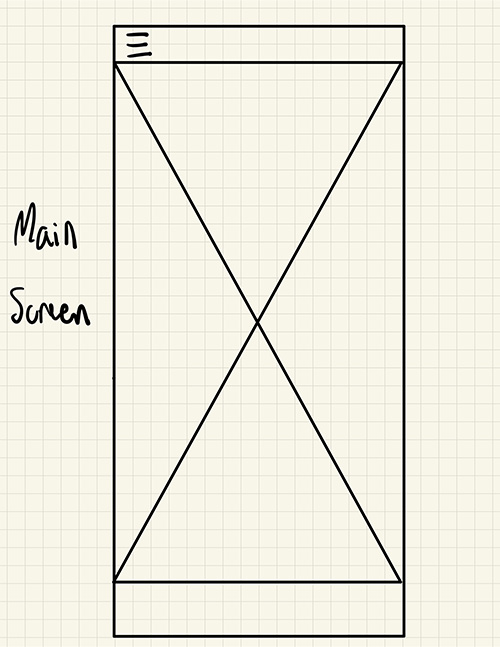 Main
Screen